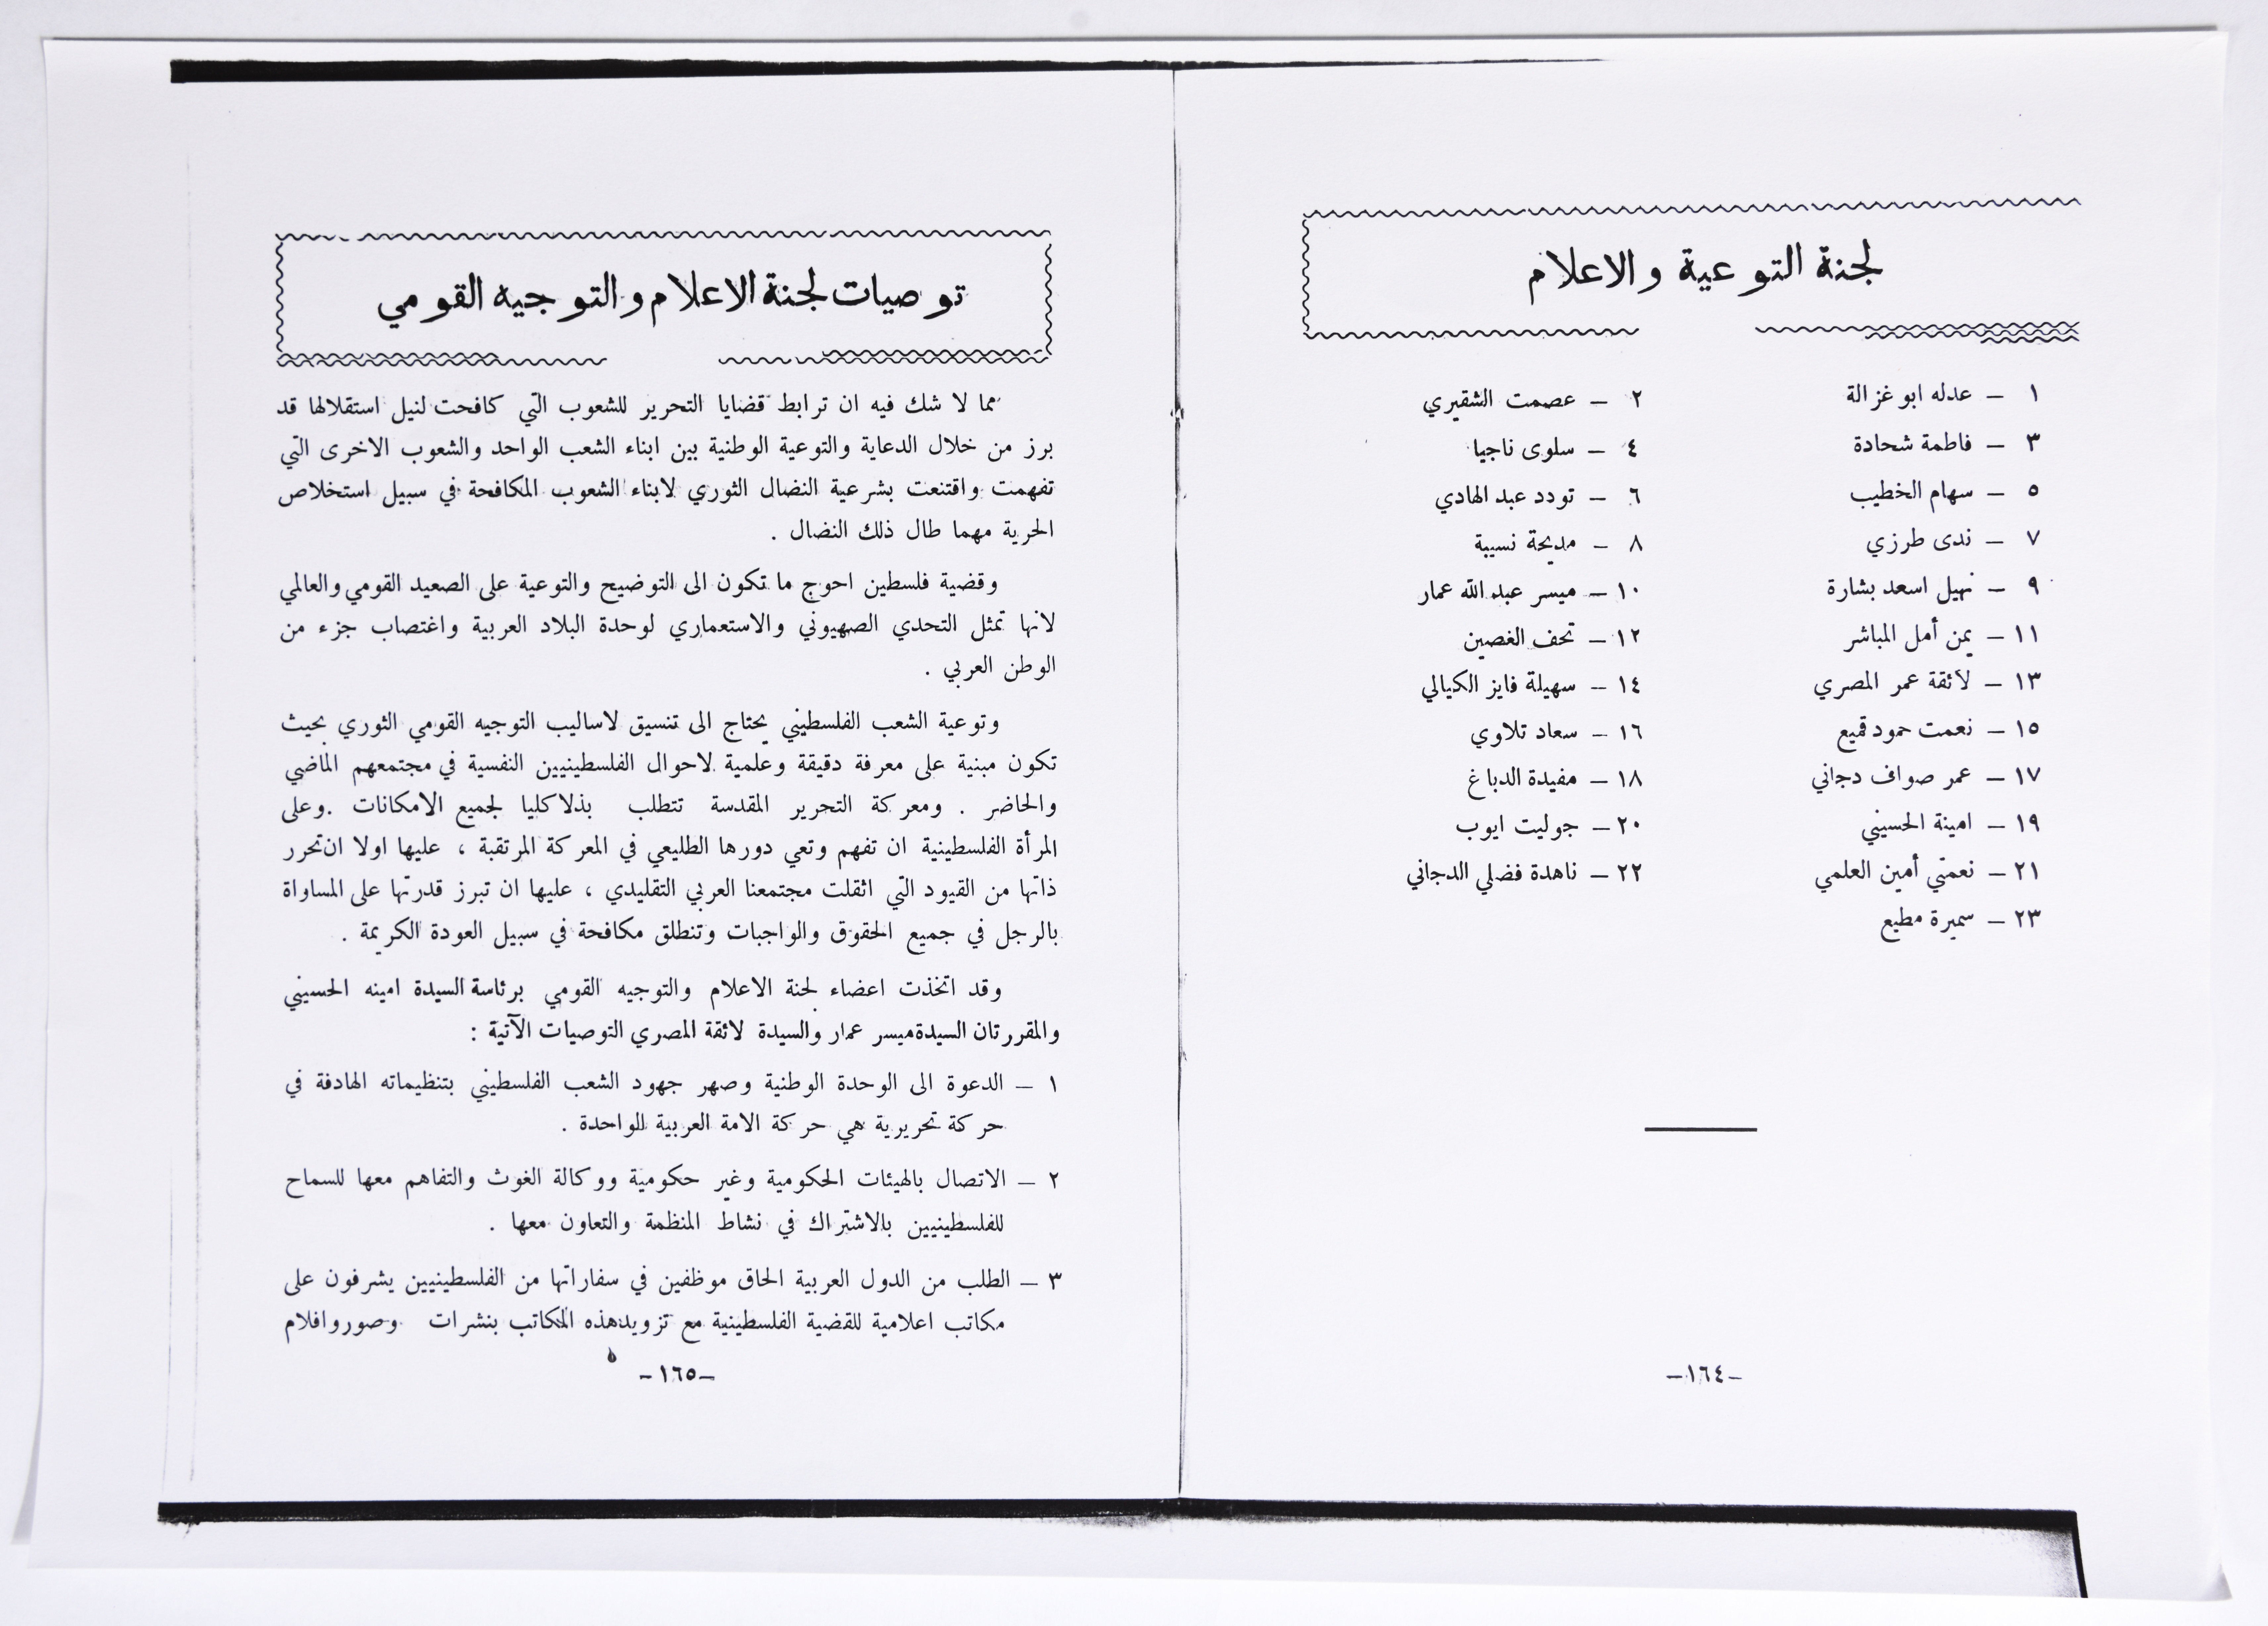 لجنة التوعية والاعلام
١ – عدله ابو غزالة
٢ – عصمت الشقيري
٣ – فاطمة شحادة
٤ – سلوى ناجيا
٥ – سهام الخطيب
٦ – تودد عبد الهادي
٧ – ندى طرزي
٨ – مديحة نسيبة
٩ – نهيل اسعد بشارة
١٠ – ميسر عبد الله عمار
١١ – يمن أمل المباشر
١٢ – تحف الغصين
١٣ – لائقة عمر المصري
١٤ – سهيلة فايز الكيالي
١٥ – نعمت حمود قميع
١٦ – سعاد تلاوي
١٧ – عمر صواف دجاني
١٨ – مفيدة الدباغ
١٩ – امينة الحسيني
٢٠ – جوليت ايوب
٢١ – نعمتي أمين العلمي
٢٢ – ناهدة فضلي الدجاني
٢٣ – سميرة مطيع
–١٦٤–
توصيات لجنة الاعلام والتوجيه القومي
مما لا شك فيه ان ترابط قضايا التحرير للشعوب التي كافحت لنيل استقلالها قد
برز من خلال الدعاية والتوعية الوطنية بين ابناء الشعب الواحد والشعوب الاخرى التي
تفهمت واقتنعت بشرعية النضال الثوري لابناء الشعوب المكافحة في سبيل استخلاص
الحرية مهما طال ذلك النضال .
وقضية فلسطين احوج ما تكون الى التوضيح والتوعية على الصعيد القومي والعالمي
لانها تمثل التحدي الصهيوني والاستعماري لوحدة البلاد العربية واغتصاب جزء من
الوطن العربي .
وتوعية الشعب الفلسطيني يحتاج الى تنسيق لاساليب التوجيه القومي الثوري بحيث
تكون مبنية على معرفة دقيقة وعلمية لاحوال الفلسطينيين النفسية في مجتمعهم الماضي
والحاضر . ومعركة التحرير المقدسة تتطلب بذلا كليا لجميع الامكانات . وعلى
المرأة الفلسطينية ان تفهم وتعي دورها الطليعي في المعركة المرتقبة ، عليها اولا ان تحرر
ذاتها من القيود التي اثقلت مجتمعنا العربي التقليدي ، عليها ان تبرز قدرتها على المساواة
بالرجل في جميع الحقوق والواجبات وتنطلق مكافحة في سبيل العودة الكريمة .
وقد اتخذت اعضاء لجنة الاعلام والتوجيه القومي برئاسة السيدة امينه الحسيني
والمقررتان السيدة ميسر عمار والسيدة لائقة المصري التوصيات الآتية :
١ – الدعوة الى الوحدة الوطنية وصهر جهود الشعب الفلسطيني بتنظيماته الهادفة في
حركة تحريرية هي حركة الامة العربية للواحدة .
٢ – الاتصال بالهيئات الحكومية وغير حكومية ووكالة الغوث والتفاهم معها للسماح
للفلسطينيين بالاشتراك في نشاط المنظمة والتعاون معها .
٣ – الطلب من الدول العربية الحاق موظفين في سفاراتها من الفلسطينيين يشرفون على
مكاتب اعلامية للقضية الفلسطينية مع تزويد هذه المكاتب بنشرات وصور وافلام
–١٦٥–